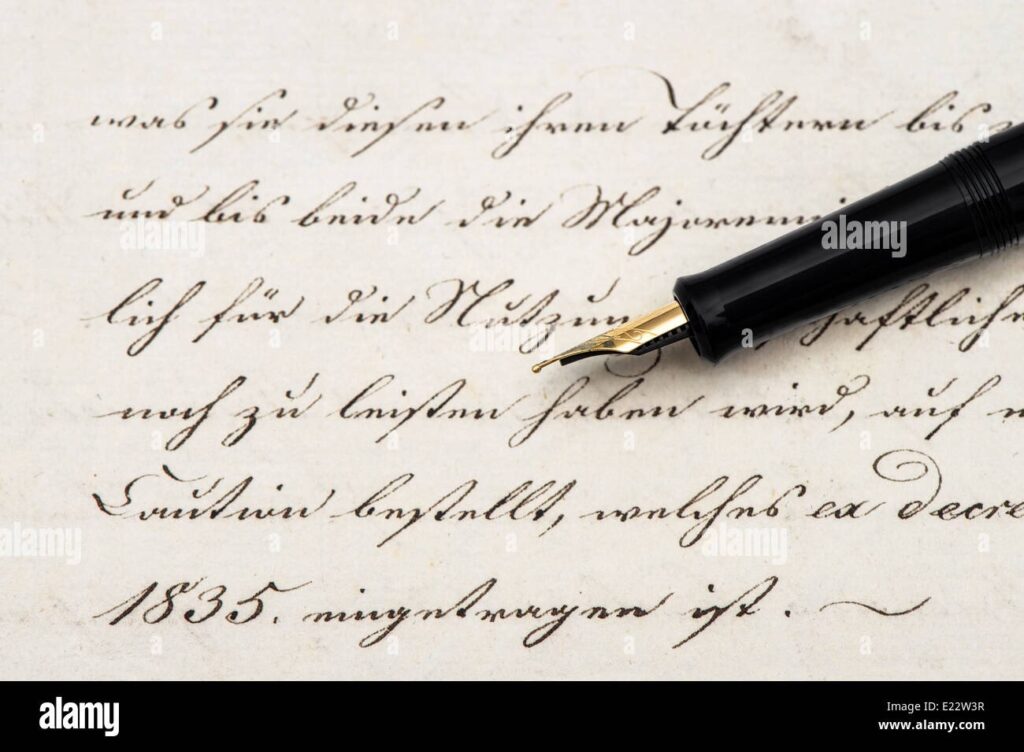 was sie diesen ihren Töchtern bis
und bis beide die Majorenni
lich für die Nutzun haftliche
noch zu leisten haben wird, auf
Caution bestellt, welches ex decre
1835. eingetragen ist.
alamy
alamy
Image ID: E22W3R
www.alamy.com